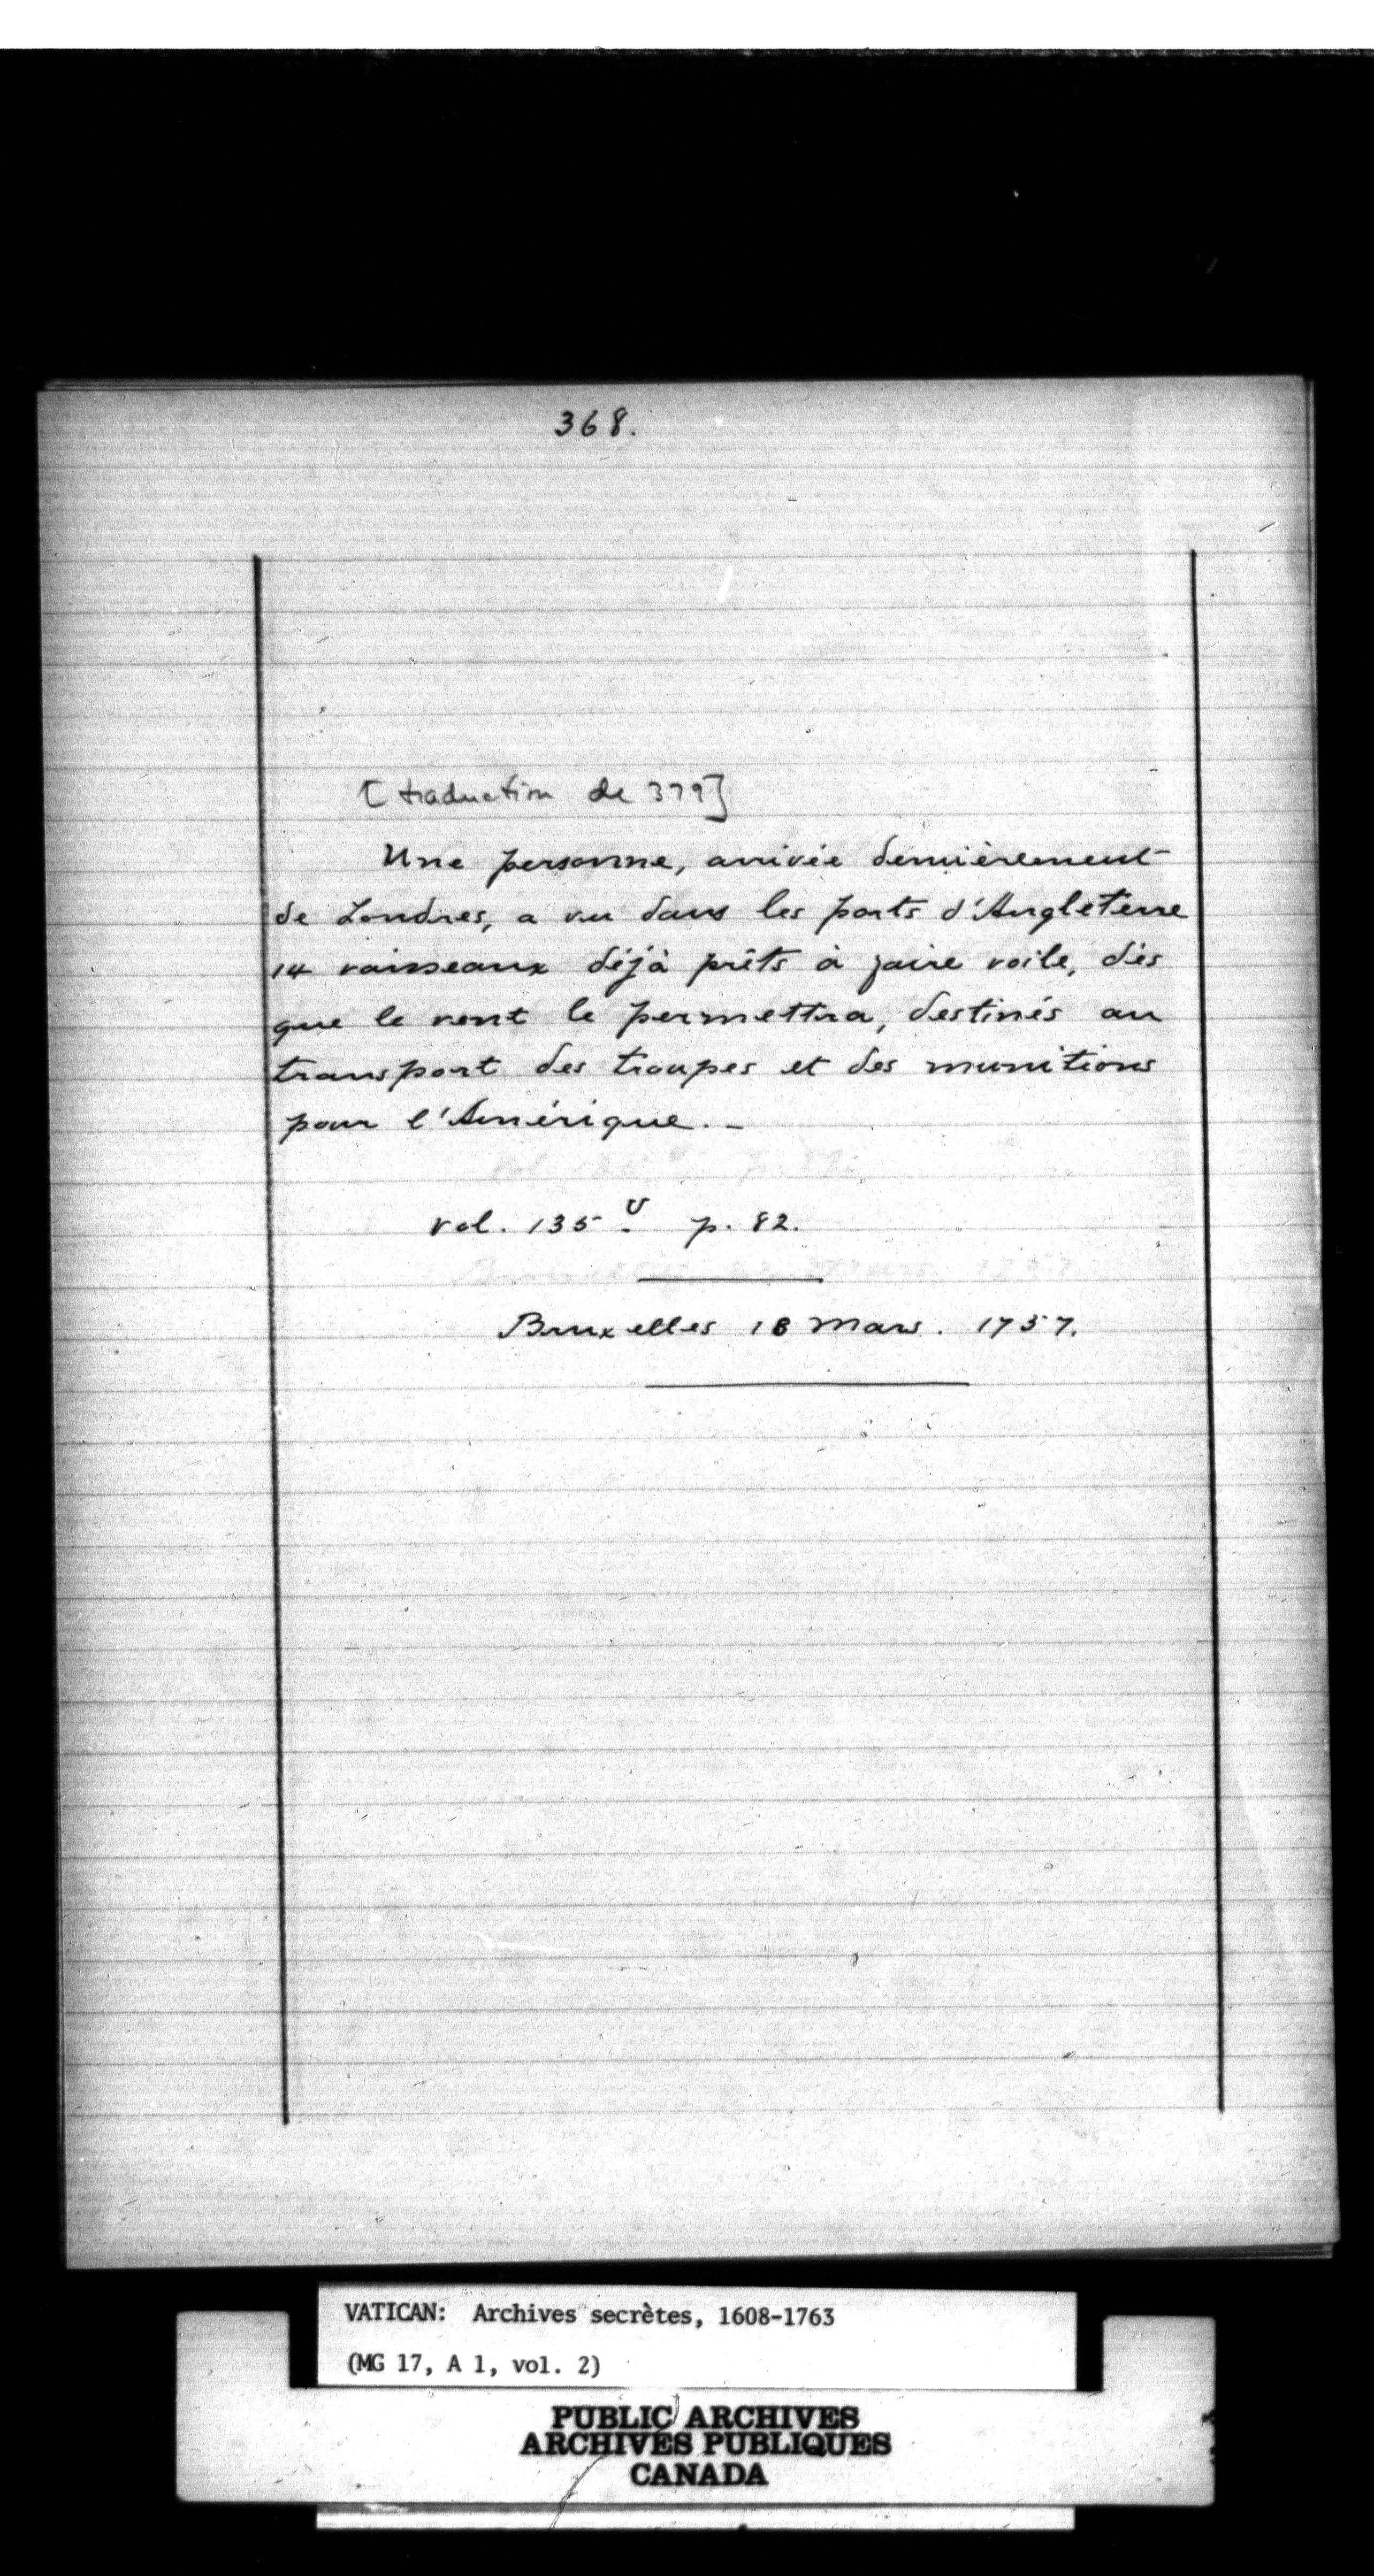 368.
[traduction de 379]
Une personne, arrivée dernièrement
de Londres, a vu dans les ports d'Angleterre
14 vaisseaux déjà prêts à faire voile, dès
que le vent le permettra, destinés au
transport des troupes et des munitions
pour l'Amérique. _
vol. 135 v. p. 82.
Bruxelles 18 Mars. 1757.
VATICAN: Archives secrètes, 1608-1763
(MG 17, A 1, vol. 2)
PUBLIC ARCHIVES
ARCHIVES PUBLIQUES
CANADA